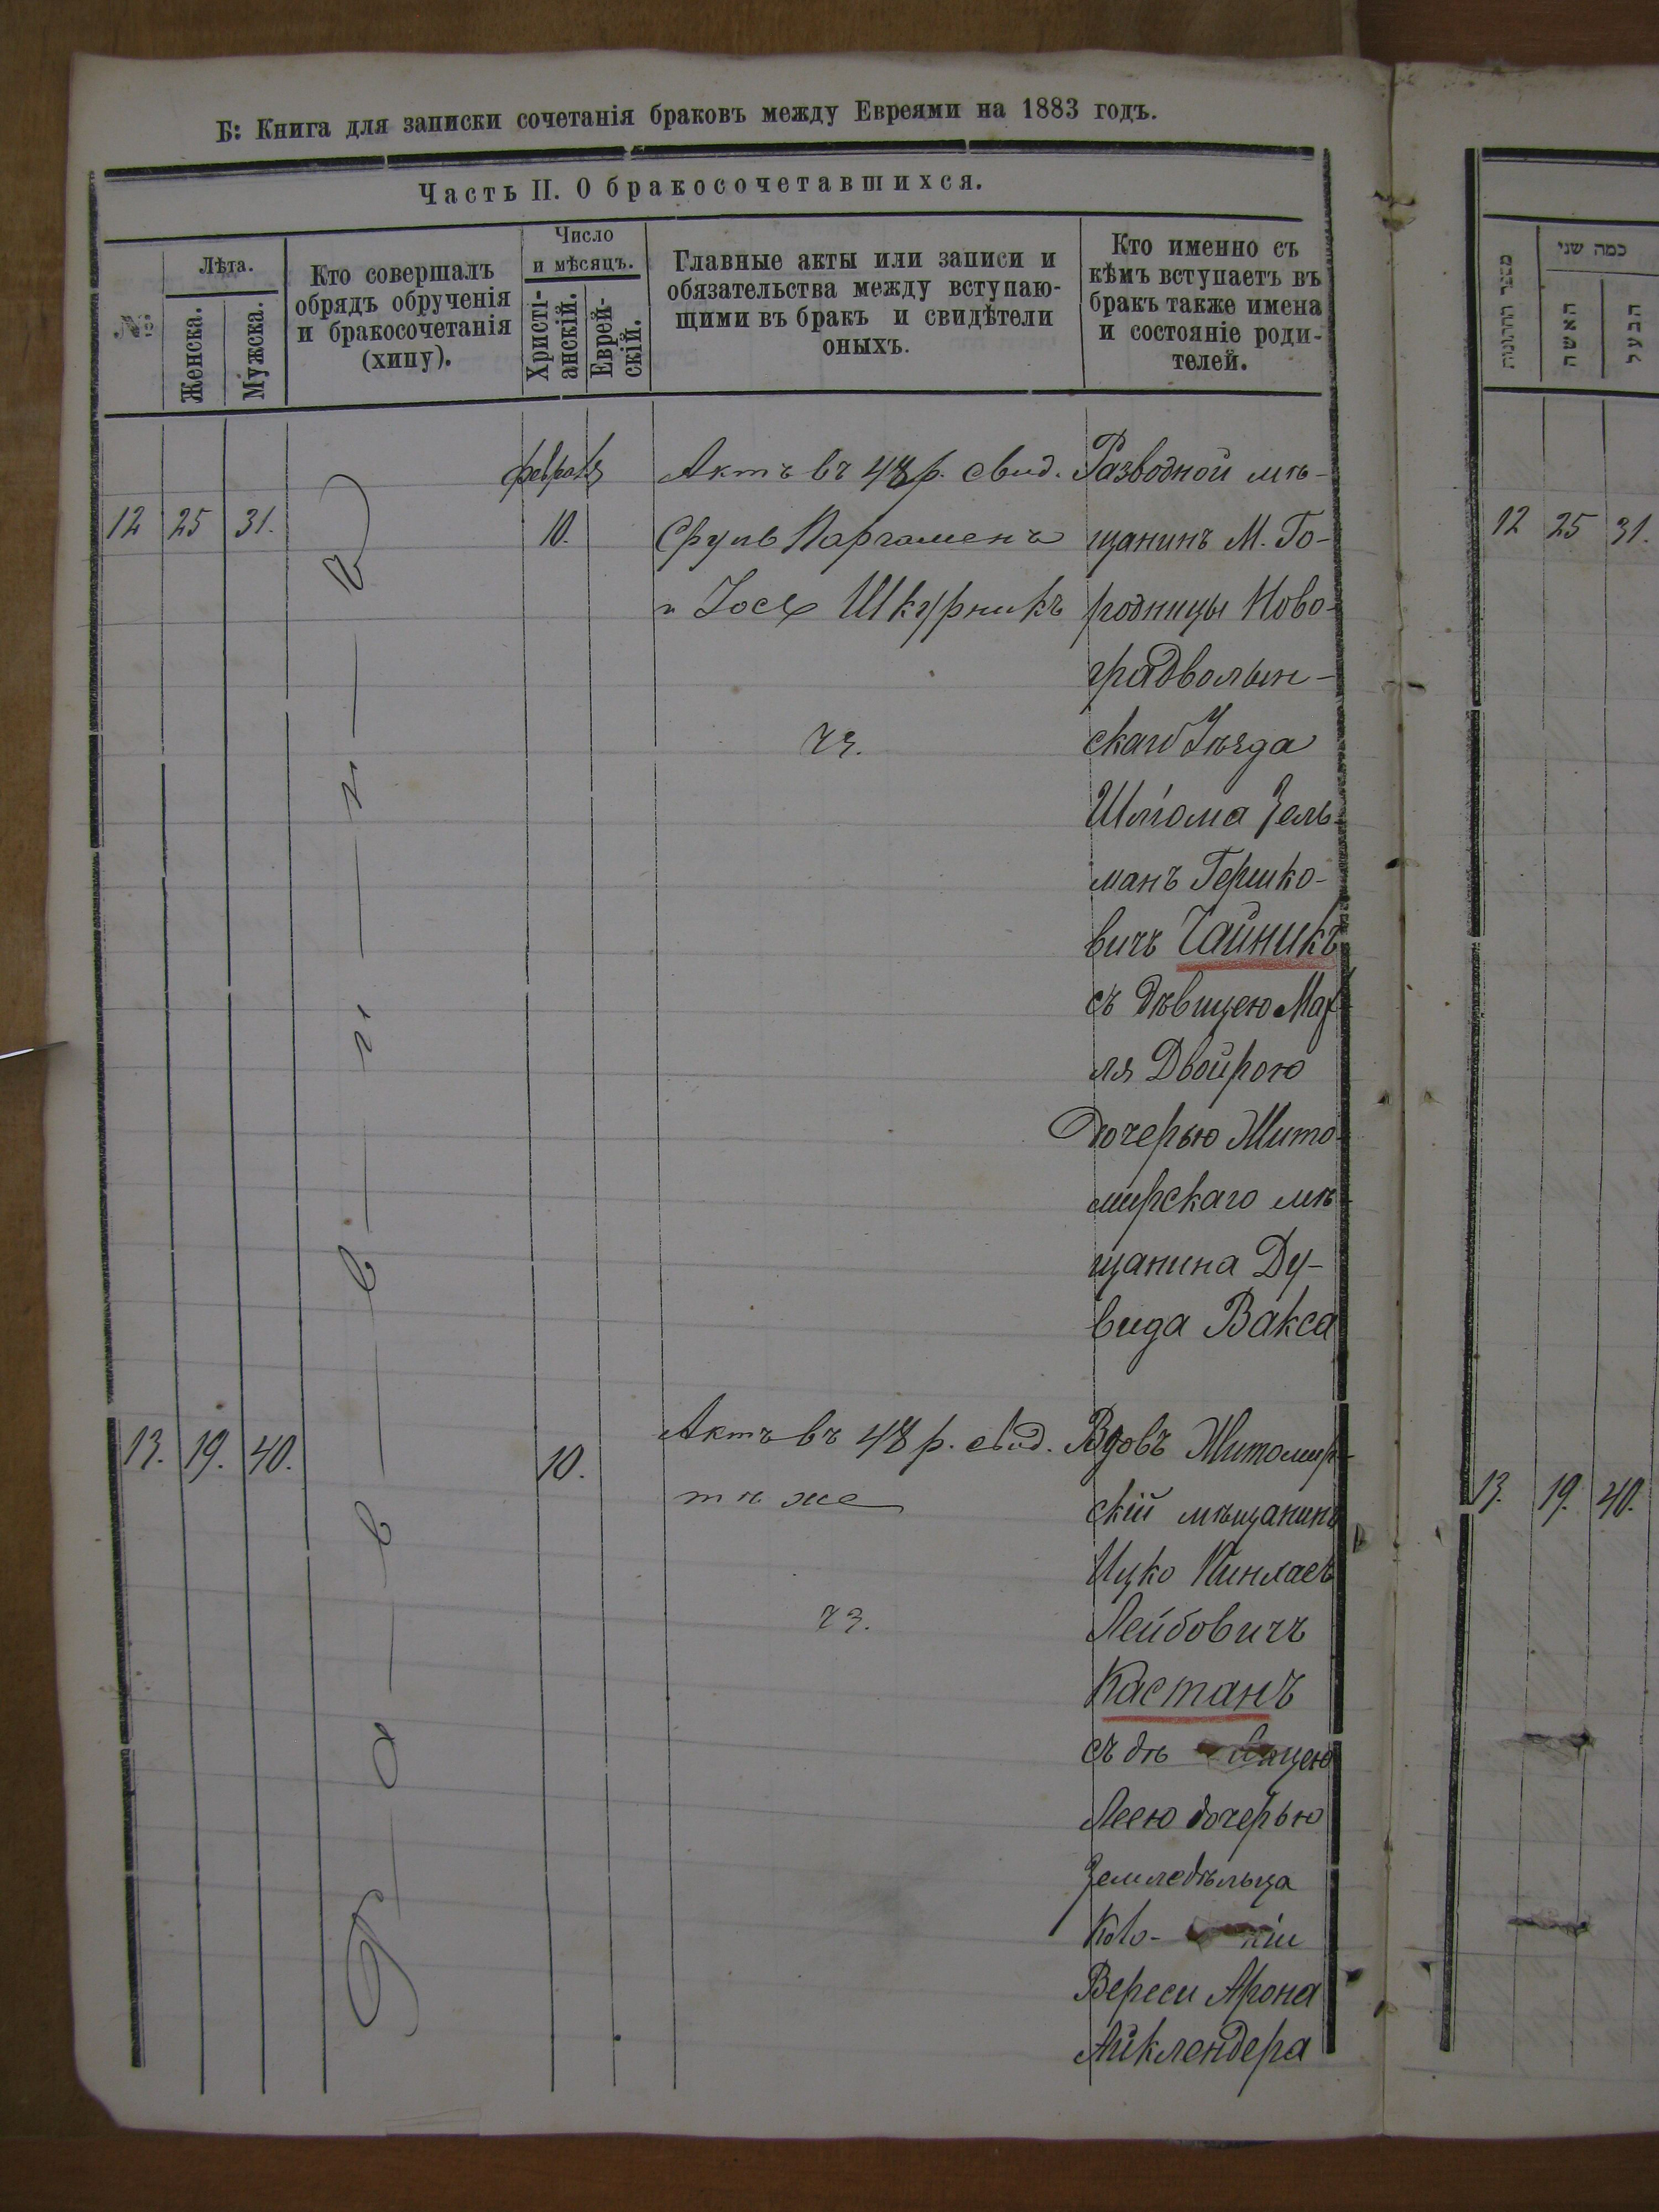 Б: Книга для записки сочетанія браковъ между Евреями на 1883 годъ.
Часть II. О бракосочетавшихся.
№
Лѣта.
Женска.
Мужска.
Кто совершалъ
обрядъ обрученія
и бракосочетанія
(хипу).
Число
и мѣсяцъ.
Христі-
анскій.
Еврей-
скій.
Главные акты или записи и
обязательства между вступаю-
щими въ бракъ и свидѣтели
оныхъ.
Кто именно съ
кѣмъ вступаетъ въ
бракъ также имена
и состояніе роди-
телей.
февраля
12 25 31. 10.
Актъ въ 48 р. свид.
Сруль Паргамень
и Іосъ Шкурникъ
чз.
Разводной мѣ-
щанинъ М. Го-
родницы Ново-
градволын-
скаго Уѣзда
Шлома Зель-
манъ Гершко-
вичъ Чайникъ
съ дѣвицею Мах
ля Двойрою
дочерью Жито-
мирскаго мѣ-
щанина Ду-
вида Вакса
13. 19. 40. 10.
Актъ въ 48 р. свид.
тѣ же
чз.
Вдовъ Житомир-
скій мѣщанинъ
Ицко Пинхасъ
Лейбовичъ
Кастанъ
съ дѣ вицею
Леею дочерью
Земледѣльца
Коло- ніи
Вереси Арона
Айклендера
מספר החתונות
כמה שני
האשה
הבעל
12 25 31.
13. 19. 40.